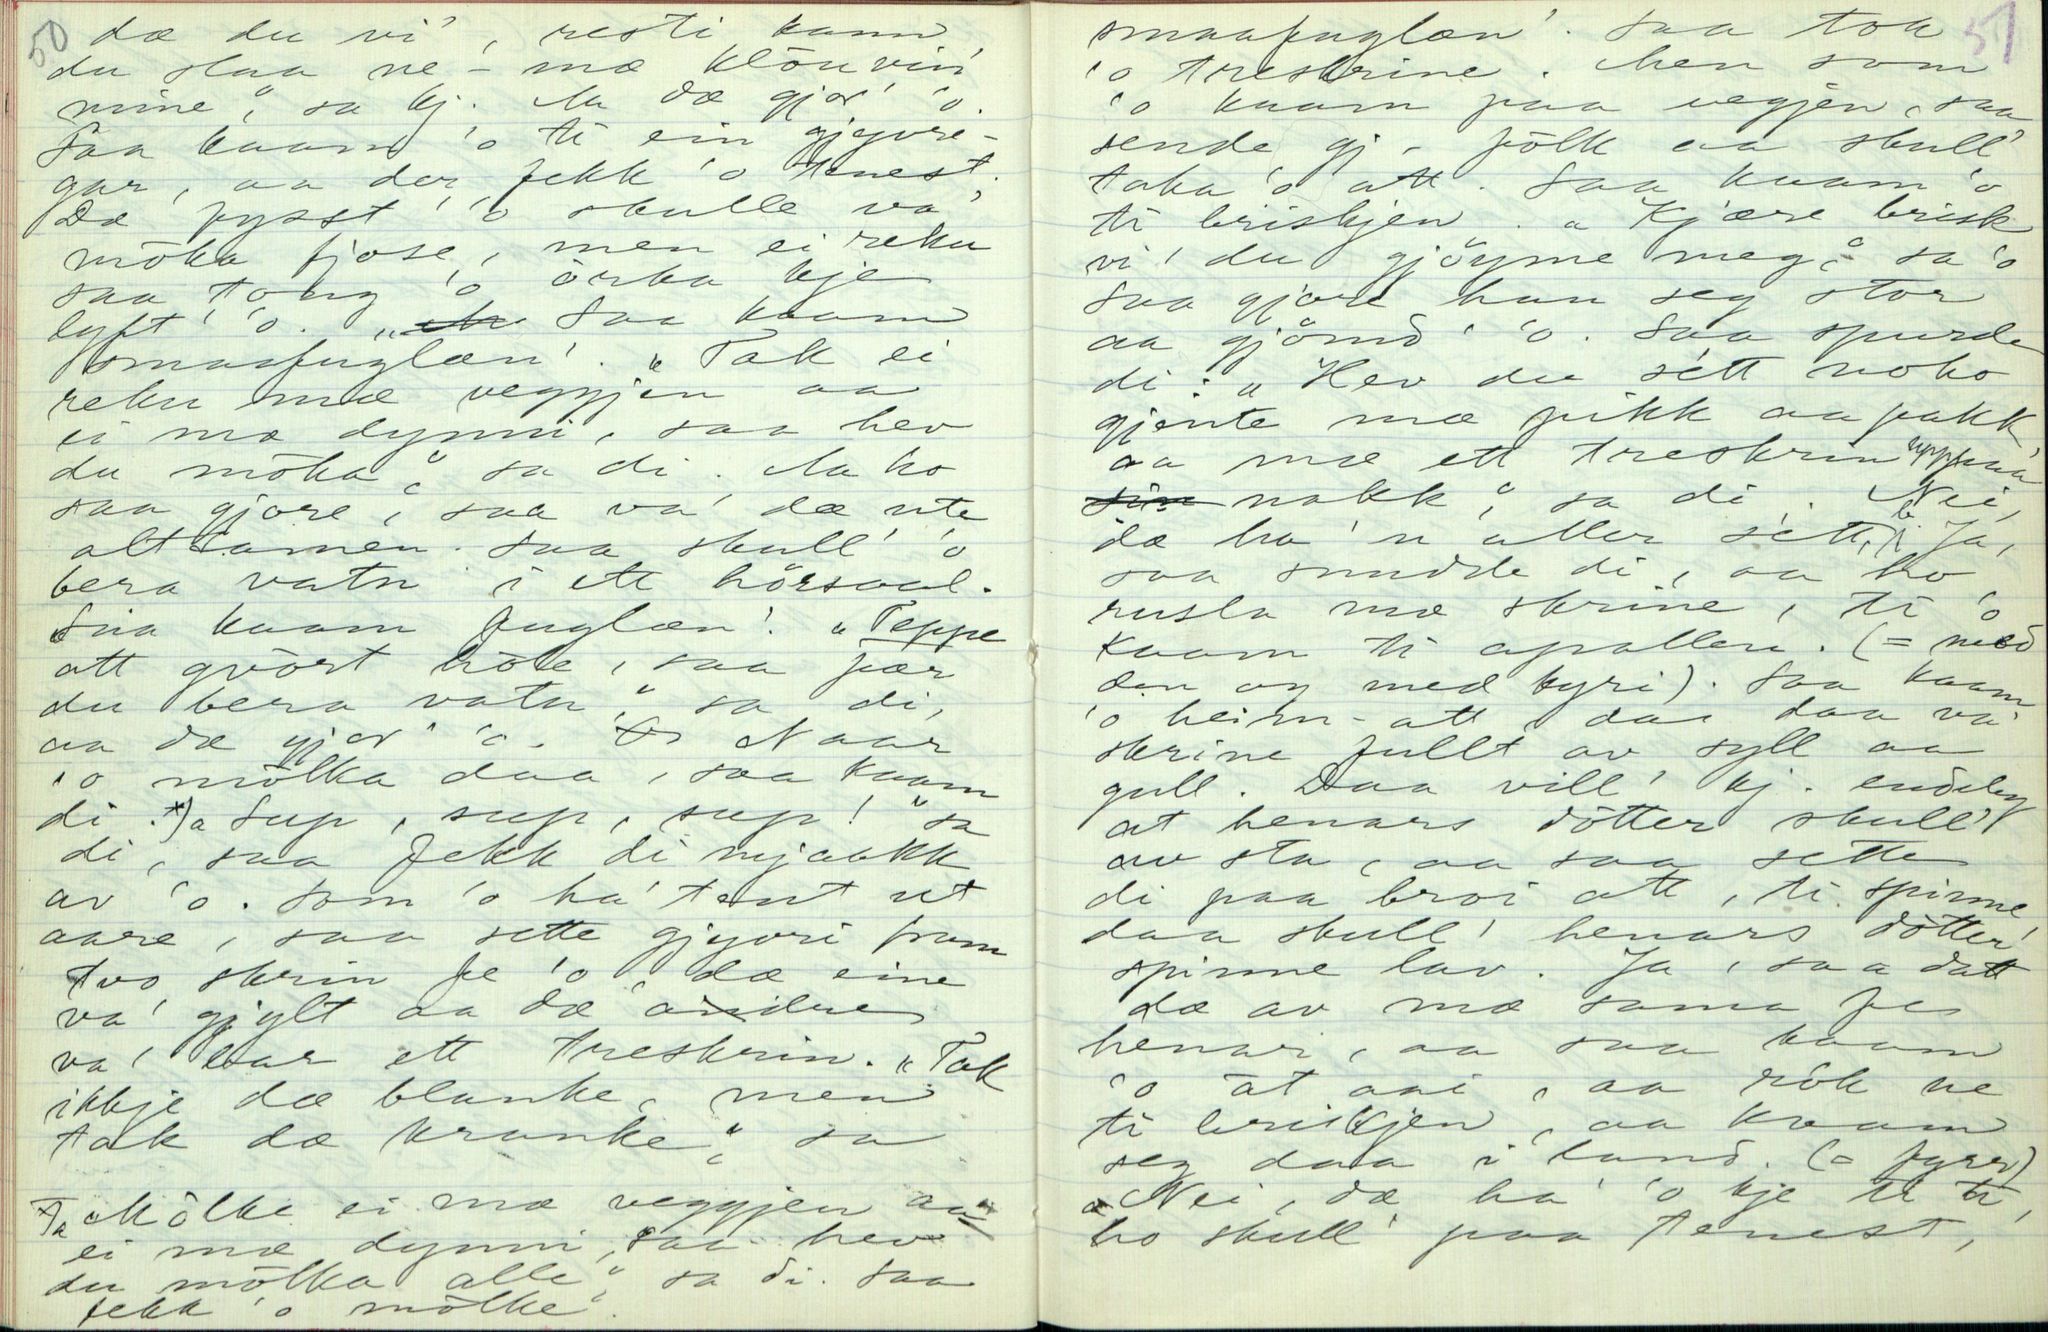 50
dæ du vi', resti kann
du slaa ne - mæ klöuvin
mine", sa kj. Aa dæ gjor' 'o.
Saa kaam 'o ti ein gjyvre-
gar', aa der fekk 'o tenest.
Dæ fysst' 'o skulle va'
möka fjose, men ei reku
saa tong 'o örka kje
lyft' 'o. Saa kaam
smaafuglæn'. "Tak ei
reku mæ veggjen aa
ei mæ dynni, saa hev
du möka", sa di. Aa ho
saa gjore, saa va' dæ ute
alt samen. Saa skull' 'o
bera vatn i ett hörsaal.
Saa kaam fuglæn'. "Teppe
att gvört höle, saa fær
du bera vatn", sa di,
aa dæ gjor' 'o. Naar
'o mölka daa, saa kaam
di. *) "Sup, sup, sup!" sa
di, saa fekk di mjaakk
av 'o. Som 'o ha' tent ut
aare, saa sette gjyvri fram
tvo skrin fe 'o dæ eine
va' gjylt aa dæ andre
va' bar ett treskrin. "Tak
ikkje dæ blanke, men
tak dæ kranke", sa
*) "Mölke ei mæ veggjen aa
ei mæ dynni, saa hev
du mölka alle", sa di. Saa
fekk 'o mölke.
51
smaafuglæn'. Saa tok
'o treskrine. Men som
'o kaam paa vegjen, saa
sende gj. fölk aa skull'
taka 'o att. Saa kaam 'o
ti briskjen. "Kjære brisk
vi' du gjöyme meg", sa 'o
Saa gjore han seg stor
aa gjömd' 'o. Saa spurde
di: "Hev du sétt noko
gjente mæ pikk aa pakk
aa mæ ett treskrin uppaa
nakk", sa di. Nei,
dæ ha' 'n aller sétt, Ja,
saa snudde di, aa ho
rusla mæ skrine, ti 'o
kaam ti apallen. (= med
den og med kyri). Saa kaam
'o heim-att, daa va'
skrine fullt av syll aa
gull. Daa vill' kj. endeleg
at henars dötter skull'
av sta, aa saa sette
di paa broi att, ti spinne
daa skull' henars dötter
spinne lav. Ja, saa datt
dæ av mæ sama fe
henar, aa saa kaam
'o åt aai, aa rök ne
ti briskjen, aa kvam
seg daa i land. (= fyrr)
"Nei, dæ ha' 'o kje ti ti,
ho skull' paa tenest,